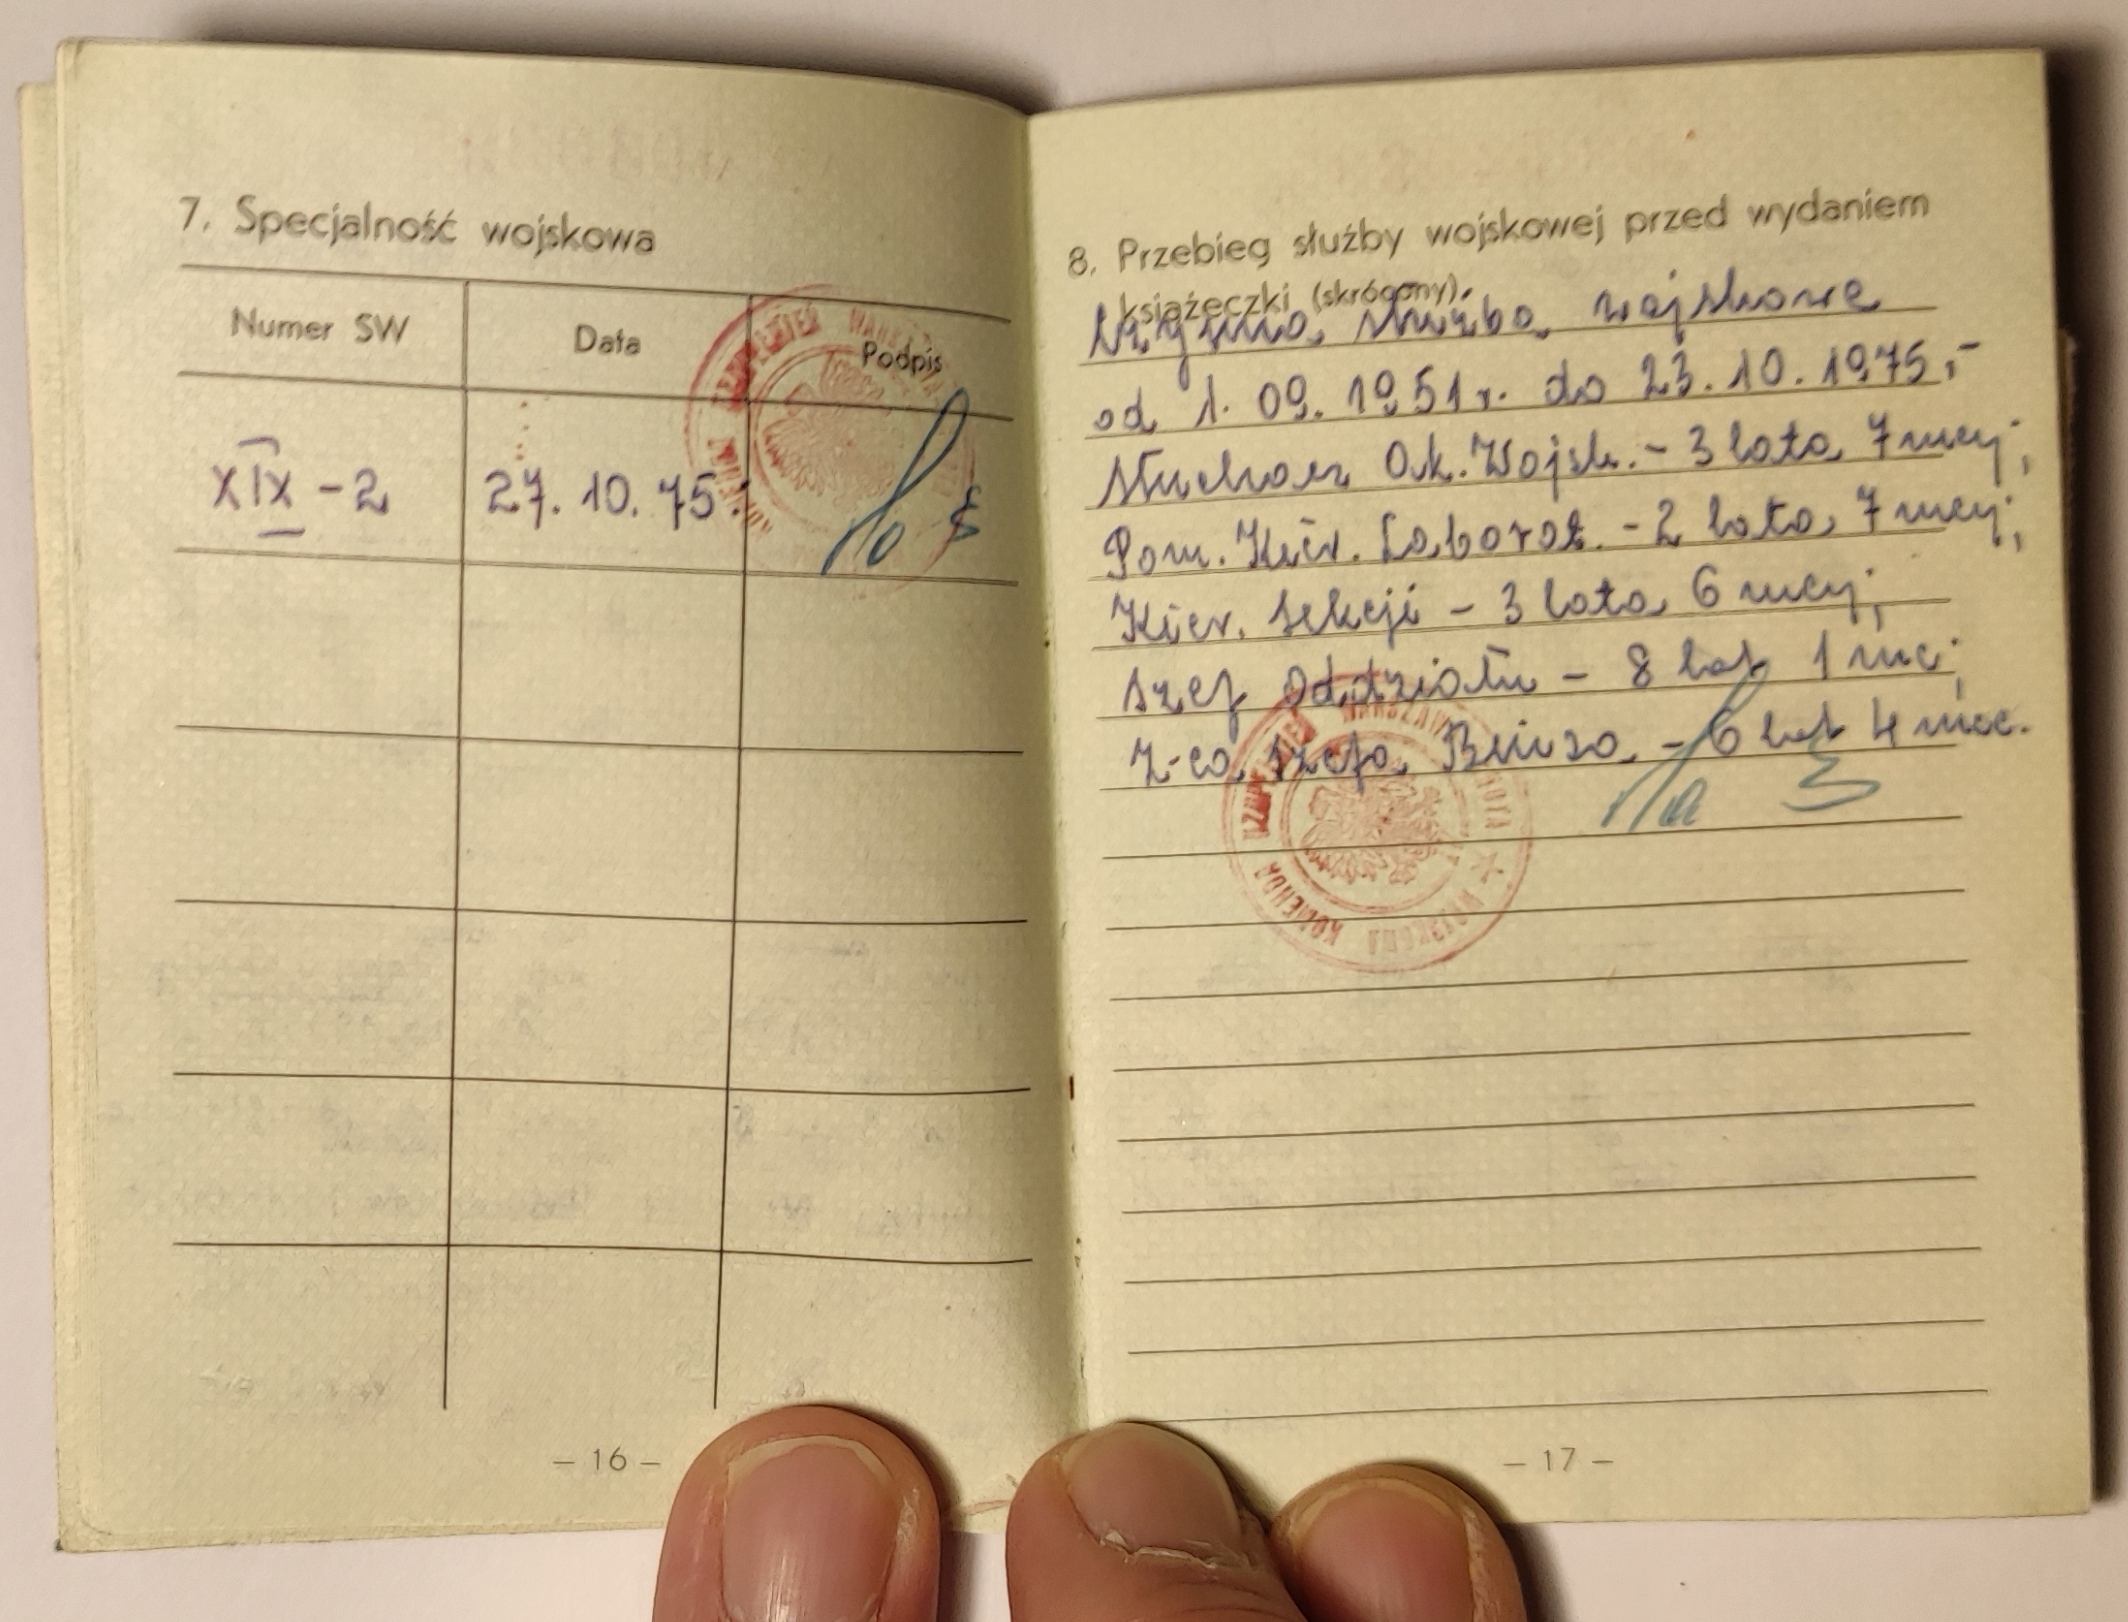 7. Specjalność wojskowa
Numer SW
Data
Podpis
XIX - 2
27. 10. 75.
- 16 -
8. Przebieg służby wojskowej przed wydaniem
książeczki (skrócony).
Czynna służba wojskowa
od 1. 09. 1951 r. do 23. 10. 1975.-
Słuchacz Ak. Wojsk. - 3 lata 7 mcy;
Pom. Kier. Laborat. - 2 lata 7 mcy;
Kier. Sekcji - 3 lata 6 mcy;
Szef Oddziału - 8 lat 1 mc;
Z-ca Szefa Biura - 6 lat 4 mce.
WOJSKOWA KOMENDA UZUPEŁNIEŃ WARSZAWA OCHOTA
- 17 -